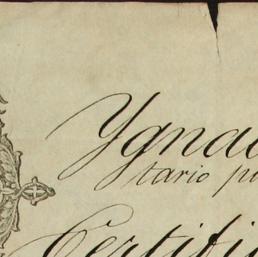 Ygnac
tario pu
Certific